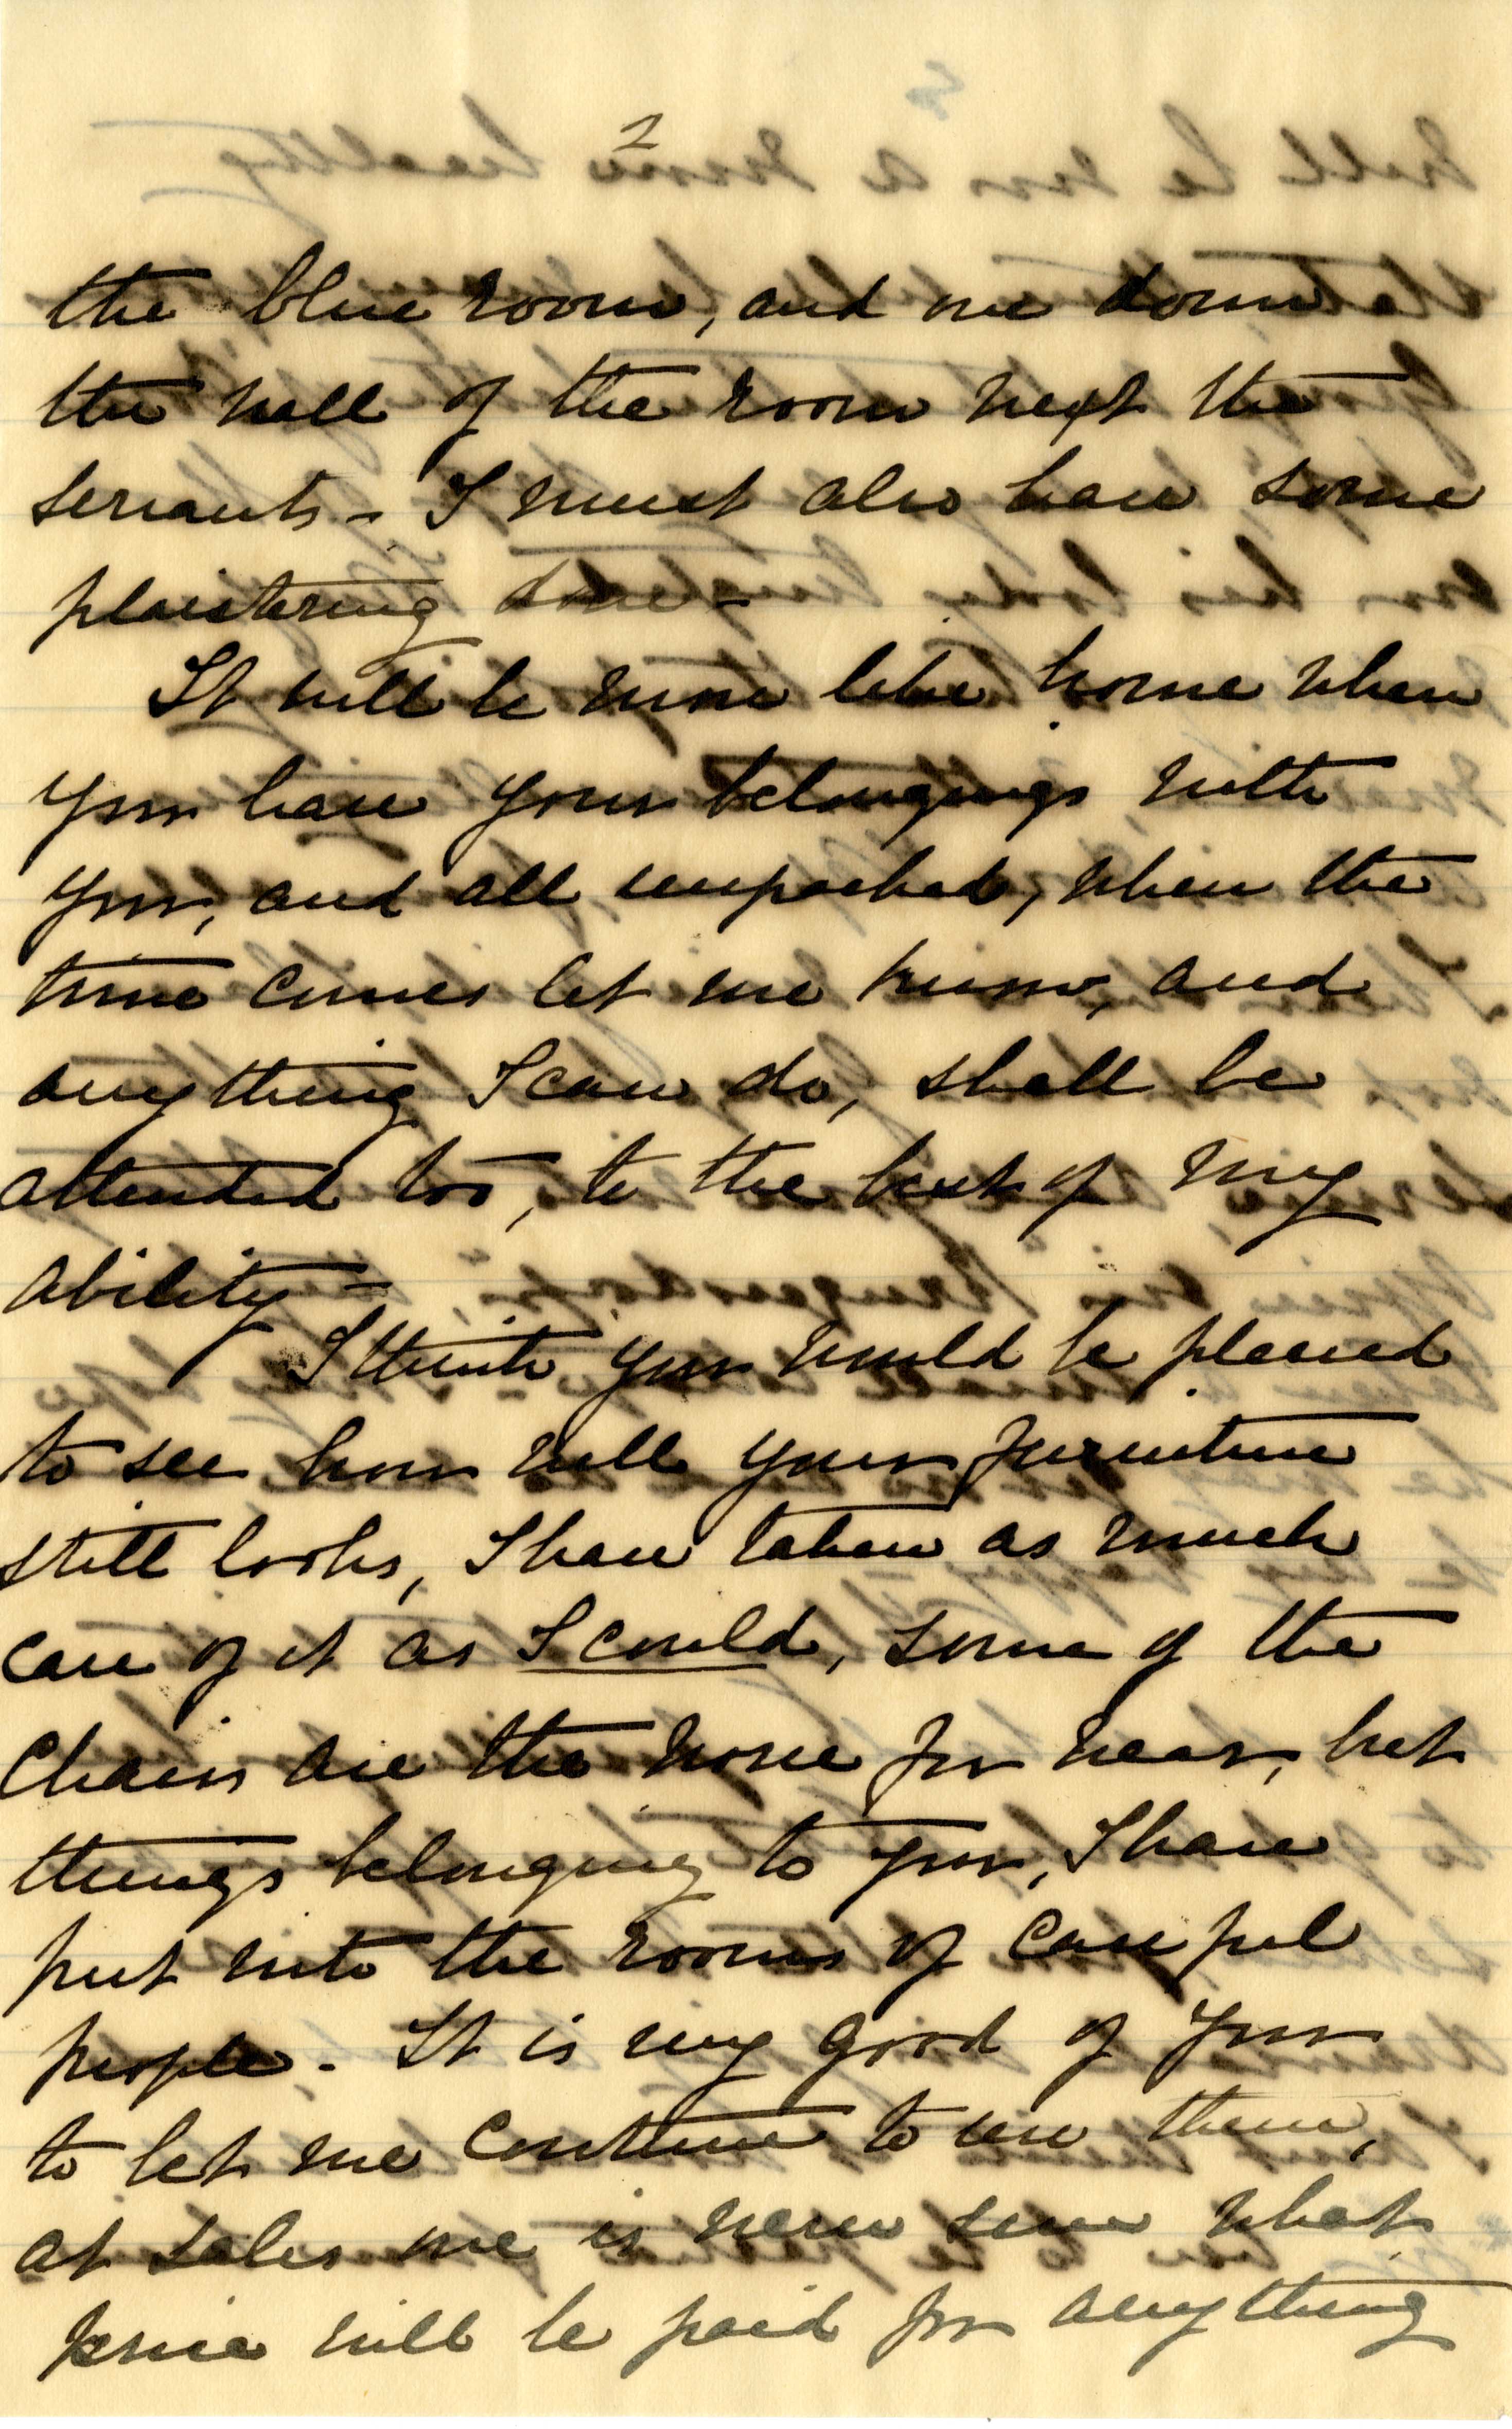 2
the blue room, and one down
the hall of the room next the
servants - I must also have some
plaistering done -
It will be more like home when
you have your belongings with
you, and all unpacked, when the
time comes let me know, and
anything I can do, shall be
attended too, to the best of my
ability -
I think you would be pleased
to see how well your furniture
still looks, I have taken as much
care of it as I could, some of the
Chairs are the worse for wear, but
things belonging to you, I have
put into the rooms of careful
people. - It is very good of you
to let me continue to use them,
at sales one is never sure what
price will be paid for anything